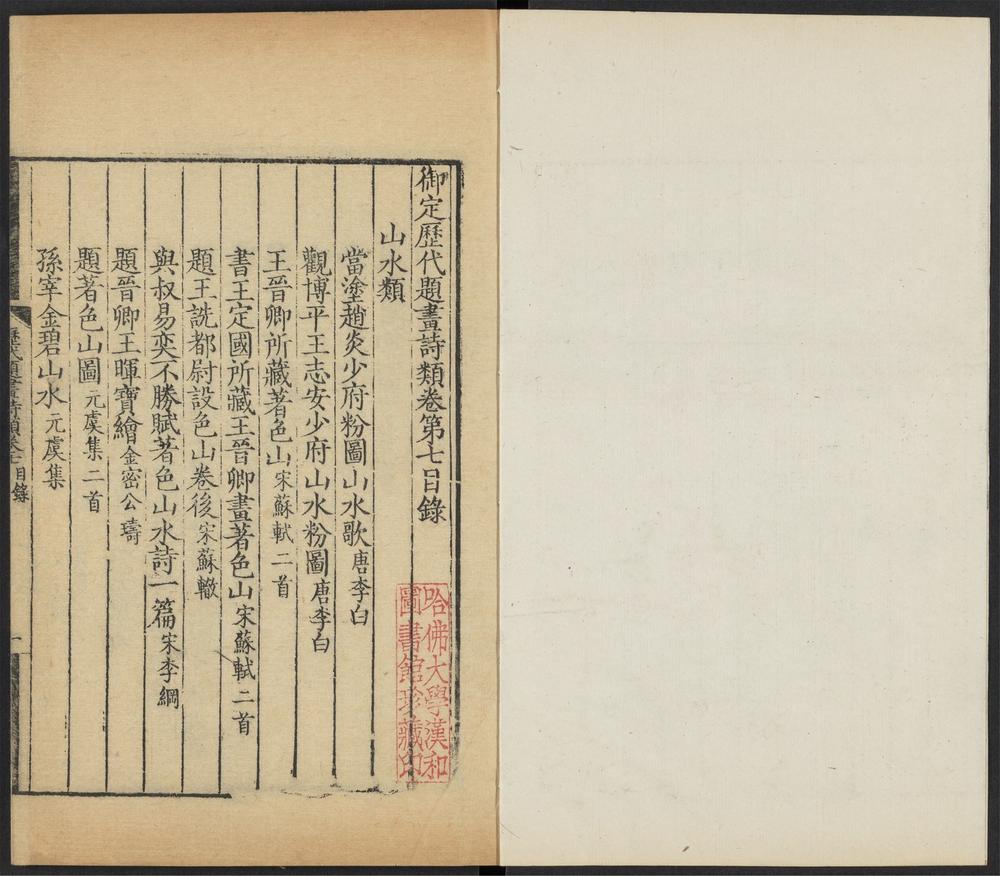 御定歷代題畫詩類卷第七目錄
山水類
當塗趙炎少府粉圖山水歌唐李白
觀博平王志安少府山水粉圖唐李白
王晉卿所藏著色山宋蘇軾二首
書王定國所藏王晉卿畫著色山宋蘇軾二首
題王詵都尉設色山卷後宋蘇轍
與叔易奕不勝賦著色山水詩一篇宋李綱
題晉卿王暉寶繪金密公璹
題著色山圖元虞集二首
孫宰金碧山水元虞集
歷代題畫詩類卷七目錄
一
哈佛大學漢和
圖書館珍藏印